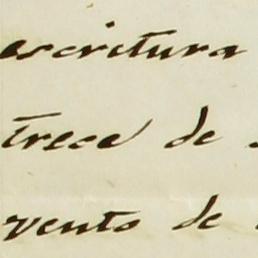 escritura
trece de
vento de